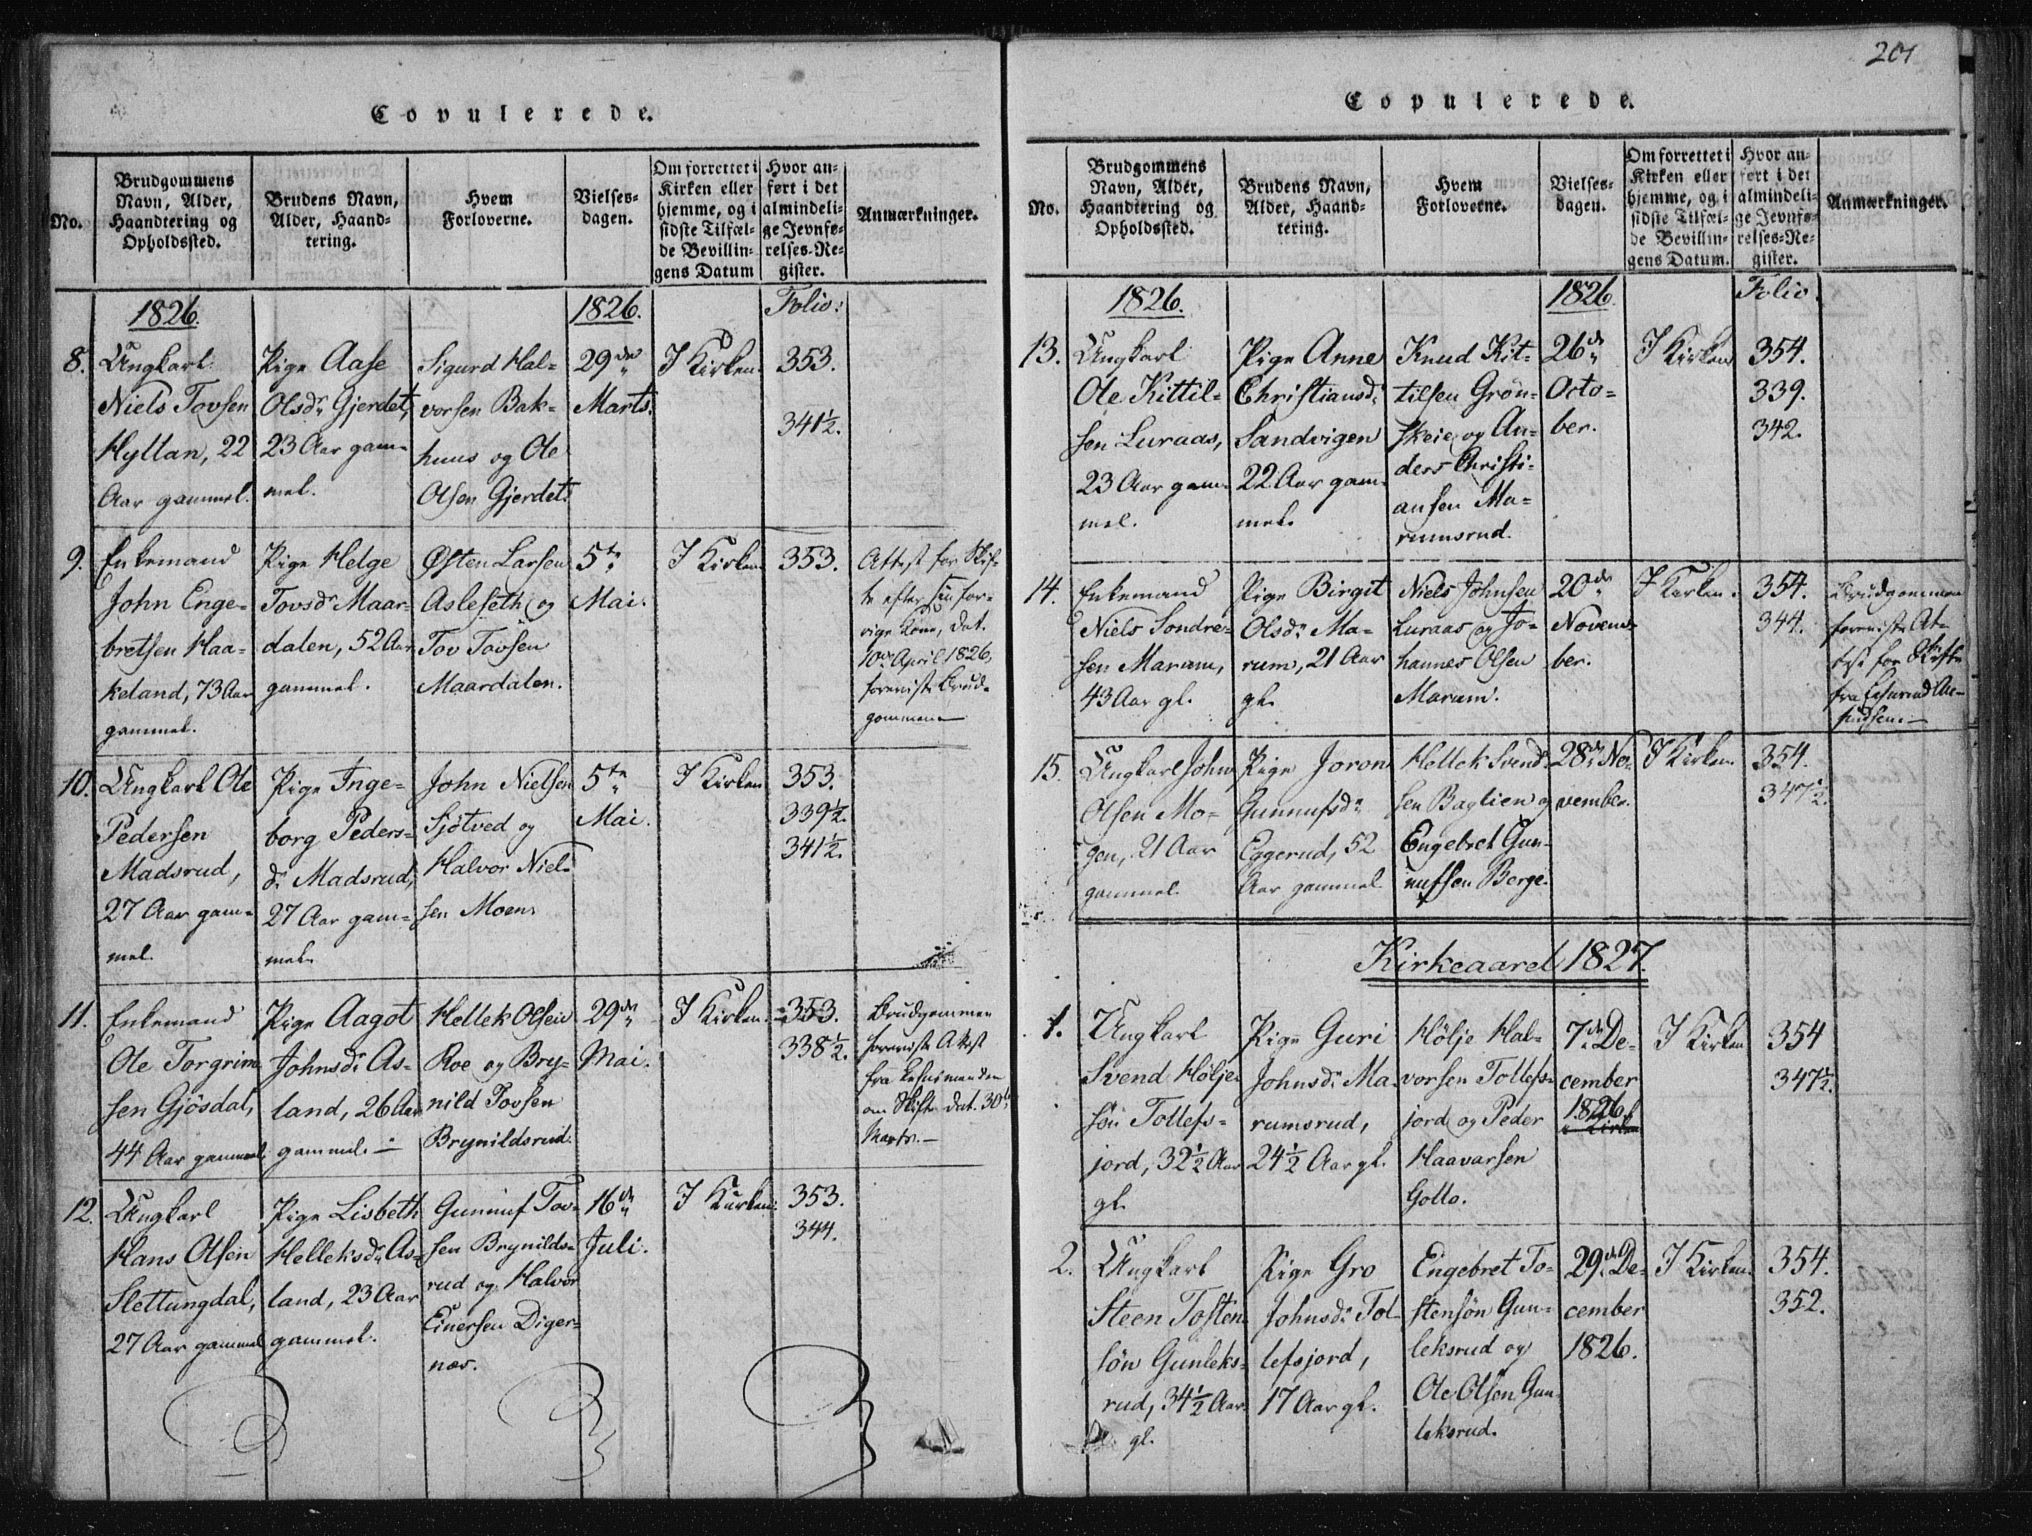 201
Copulerede.
No.
Brudgommens Navn, Alder, Haandtering og Opholdssted.
Brudens Navn, Alder, Haandtering.
Hvem Forloverne.
Vielsesdagen.
Om forrettet i Kirken eller hjemme, og i sidste Tilfælde Bevillingens Datum
Hvor anført i det almindelige Jevnførelses-Register.
Anmærkninger.
1826.
1826.
Folio:
8.
Ungkarl
Niels Tovsen
Hyltan, 22
Aar gammel.
Pige Aase
Olsdr Gjerdet,
23 Aar gam=
mel.
Sigurd Hal=
vorsen Bak=
huus og Ole
Olsen Gjerdet.
29de
Marts.
I Kirken.
353.
341½.
9.
Enkemand
John Enge=
bretsen Haa=
keland, 73 Aar
gammel.
Pige Helge
Tovsdr Maar=
dalen, 52 Aar
gammel.
Østen Larsen
Asleseth og
Tov Tovsen
Maardalen.
5te
Mai.
I Kirken.
353.
Attest for Skif=
te efter sin for=
rige Kone, dat.
10de April 1826,
foreviste Brud=
gommen
10.
Ungkarl Ole
Pedersen
Madsrud,
27 Aar gam=
mel.
Pige Inge=
borg Peders=
dr Madsrud,
27 Aar gam=
mel.
John Nielsen
Sjøtved og
Halvor Niel=
sen Moen.
5te
Mai.
I Kirken
353.
339½.
341½.
11.
Enkemand
Ole Torgrim
sen Gjøsdal,
44 Aar gammel.
Pige Aagot
Johnsdr As=
land, 26 Aar
gammel.
Hellek Olsen
Roe og Bry=
nild Tovsen
Brynildsrud.
29de
Mai.
I Kirken.
353.
338½.
Brudgommen
foreviste Attest
fra Lehnsmanden
om Skifte dat. 30te
Marts.
12.
Ungkarl
Hans Olsen
Slettungdal,
27 Aar gammel
Pige Lisbeth
Helleksdr As=
land, 23 Aar
gammel.
Gunnuf Tov=
sen Brynilds=
rud og Halvor
Einersen Diger=
næs.
16de
Juli.
I Kirken.
353.
344.
Copulerede.
No.
Brudgommens Navn, Alder, Haandtering og Opholdssted.
Brudens Navn, Alder, Haandtering.
Hvem Forloverne.
Vielsesdagen.
Om forrettet i Kirken eller hjemme, og i sidste Tilfælde Bevillingens Datum.
Hvor anført i det almindelige Jevnførelses-Register.
Anmærkninger.
1826.
1826.
Folio.
13.
Ungkarl
Ole Kittil=
sen Luraas,
23 Aar gam=
mel.
Pige Anne
Christiansdr
Sandvigen
22 Aar gam=
mel.
Knud Kit=
tilsen Grøn=
skeie og An=
ders Christi=
ansen Ma=
rumsrud.
26de
Octo=
ber.
I Kirken
354.
339.
342.
14.
Enkemand
Niels Sondre=
sen Maram,
43 Aar gl.
Pige Birgit
Olsdr Ma=
rum, 21 Aar
gl.
Niels Johnsen
Luraas og Jo=
hannes Olsen
Maram.
20de
Novem=
ber.
I Kirken.
354.
344.
Brudgommen
foreviste At=
test for Skifte
15.
Ungkarl John
Olsen Mo=
gen, 21 Aar
gammel
Pige Joron
Gunnufsdr
Eggerud, 52
Aar gammel
Hellek Svend=
sen Baglien og
Engebret Gun=
nufsen Berge.
28de No=
vember.
I Kirken.
354.
347½.
Kirkeaaret 1827.
1.
Ungkarl
Svend Hølje
søn Tollefs=
jord, 32½ Aar
gl.
Pige Guri
Johnsdr Ma=
rumsrud,
24½ Aar gl.
Hølje Hal=
vorsen Tollefs=
jord og Peder
Haavarsen
Gollo.
7de De=
cember
1826.
I Kirken
354
347½.
2.
Ungkarl
Steen Tosten
søn Gunleks=
rud, 34½ Aar
gl.
Pige Gro
Johnsdr Tol
lefsjord,
17 Aar gl.
Engebret To=
stensøn Gun=
leksrud og
Ole Olsen Gun
leksrud.
29de De=
cember
1826.
I Kirken.
354.
352.